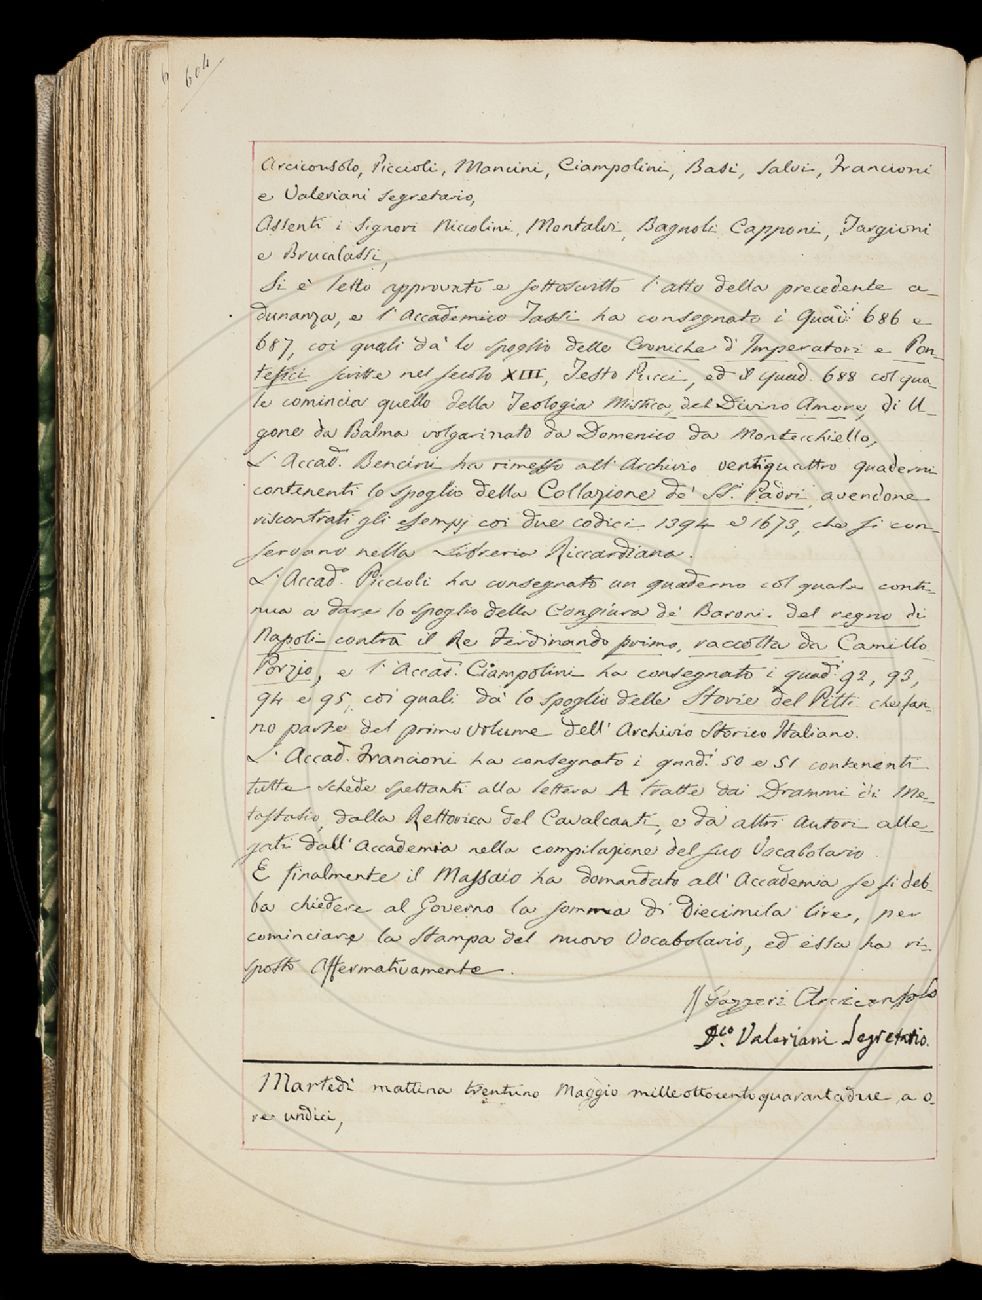 604
Arciconsolo, Piccioli, Mancini, Ciampolini, Basi, Salvi, Francioni
e Valeriani Segretario,
Assenti i Signori Niccolini, Montalvi, Bagnoli Capponi, Targioni
e Brucalassi,
Si è letto approvato e sottoscritto l'atto della precedente a-
dunanza, e l'Accademico Tassi ha consegnato i Quad: 686 e
687, coi quali dà lo spoglio delle Croniche d'Imperatori e Pon-
tefici scritte nel secolo XIII, Testo Pucci, ed il quad. 688 col qua-
le comincia quello della Teologia Mistica, del Divino Amore, di U-
gone da Balma volgarizzato da Domenico da Montecchiello,
L'Accad. Bencini ha rimesso all'Archivio ventiquattro quaderni
contenenti lo spoglio della Collazione de' SS. Padri, avendone
riscontrati gli esempj coi due codici 1394 e 1673, che si con-
servano nella Libreria Riccardiana.
L'Accad. Piccioli ha consegnato un quaderno col quale conti-
nua a dare lo spoglio della Congiura de' Baroni del regno di
Napoli contra il Re Ferdinando primo, raccolta da Camillo
Porzio, e l'Accad. Ciampolini ha consegnato i quad. 92, 93,
94 e 95, coi quali dà lo spoglio delle Storie del Pitti che fan-
no parte del primo volume dell'Archivio Storico Italiano.
L'Accad. Francioni ha consegnato i quad. 50 e 51 contenenti
tutte schede spettanti alla lettera A tratte dai Drammi di Me-
tastasio, dalla Rettorica del Cavalcanti, e da altri Autori alle-
gati dall'Accademia nella compilazione del suo Vocabolario.
E finalmente il Massaio ha domandato all'Accademia se si deb-
ba chiedere al Governo la somma di diecimila lire, per
cominciare la stampa del nuovo Vocabolario, ed essa ha ri-
sposto affermativamente.
Gazzeri Arciconsolo
D.co Valeriani Segretario.
Martedì mattina trentuno Maggio mille ottocento quarantadue, a o-
re undici,